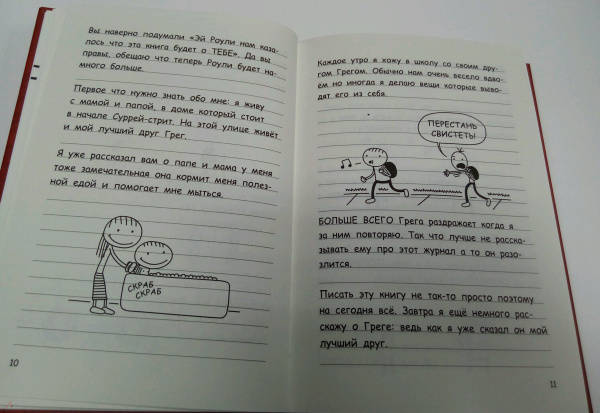 Вы наверно подумали «Эй Роули нам каза-
лось что эта книга будет о ТЕБЕ». Да вы
правы, обещаю что теперь Роули будет на-
много больше.
Первое что нужно знать обо мне: я живу
с мамой и папой, в доме который стоит
в начале Суррей-стрит. На этой улице живёт
и мой лучший друг Грег.
Я уже рассказал вам о папе и мама у меня
тоже замечательная она кормит меня полез-
ной едой и помогает мне мыться.
СКРАБ
СКРАБ
10
Каждое утро я хожу в школу со своим дру-
гом Грегом. Обычно нам очень весело вдво-
ём но иногда я делаю вещи которые выво-
дят его из себя.
ПЕРЕСТАНЬ
СВИСТЕТЬ!
БОЛЬШЕ ВСЕГО Грега раздражает когда я
за ним повторяю. Так что лучше не расска-
зывать ему про этот журнал а то он разо-
злится.
Писать эту книгу не так-то просто поэтому
на сегодня всё. Завтра я ещё немного рас-
скажу о Греге: ведь как я уже сказал он мой
лучший друг.
11